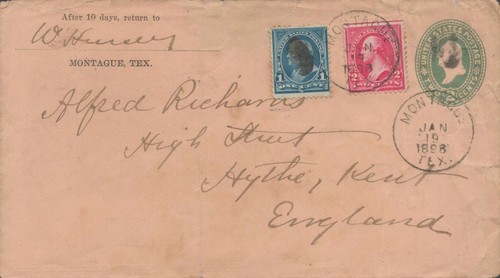 After 10 days, return to
W. Hursey
MONTAGUE, TEX.
1
ONE CENT
2
2
MONTAGUE
UNITED STATES POSTAGE
MONTAGUE
JAN
19
1896
TEX.
Alfred Richards
High Street
Hythe, Kent
England